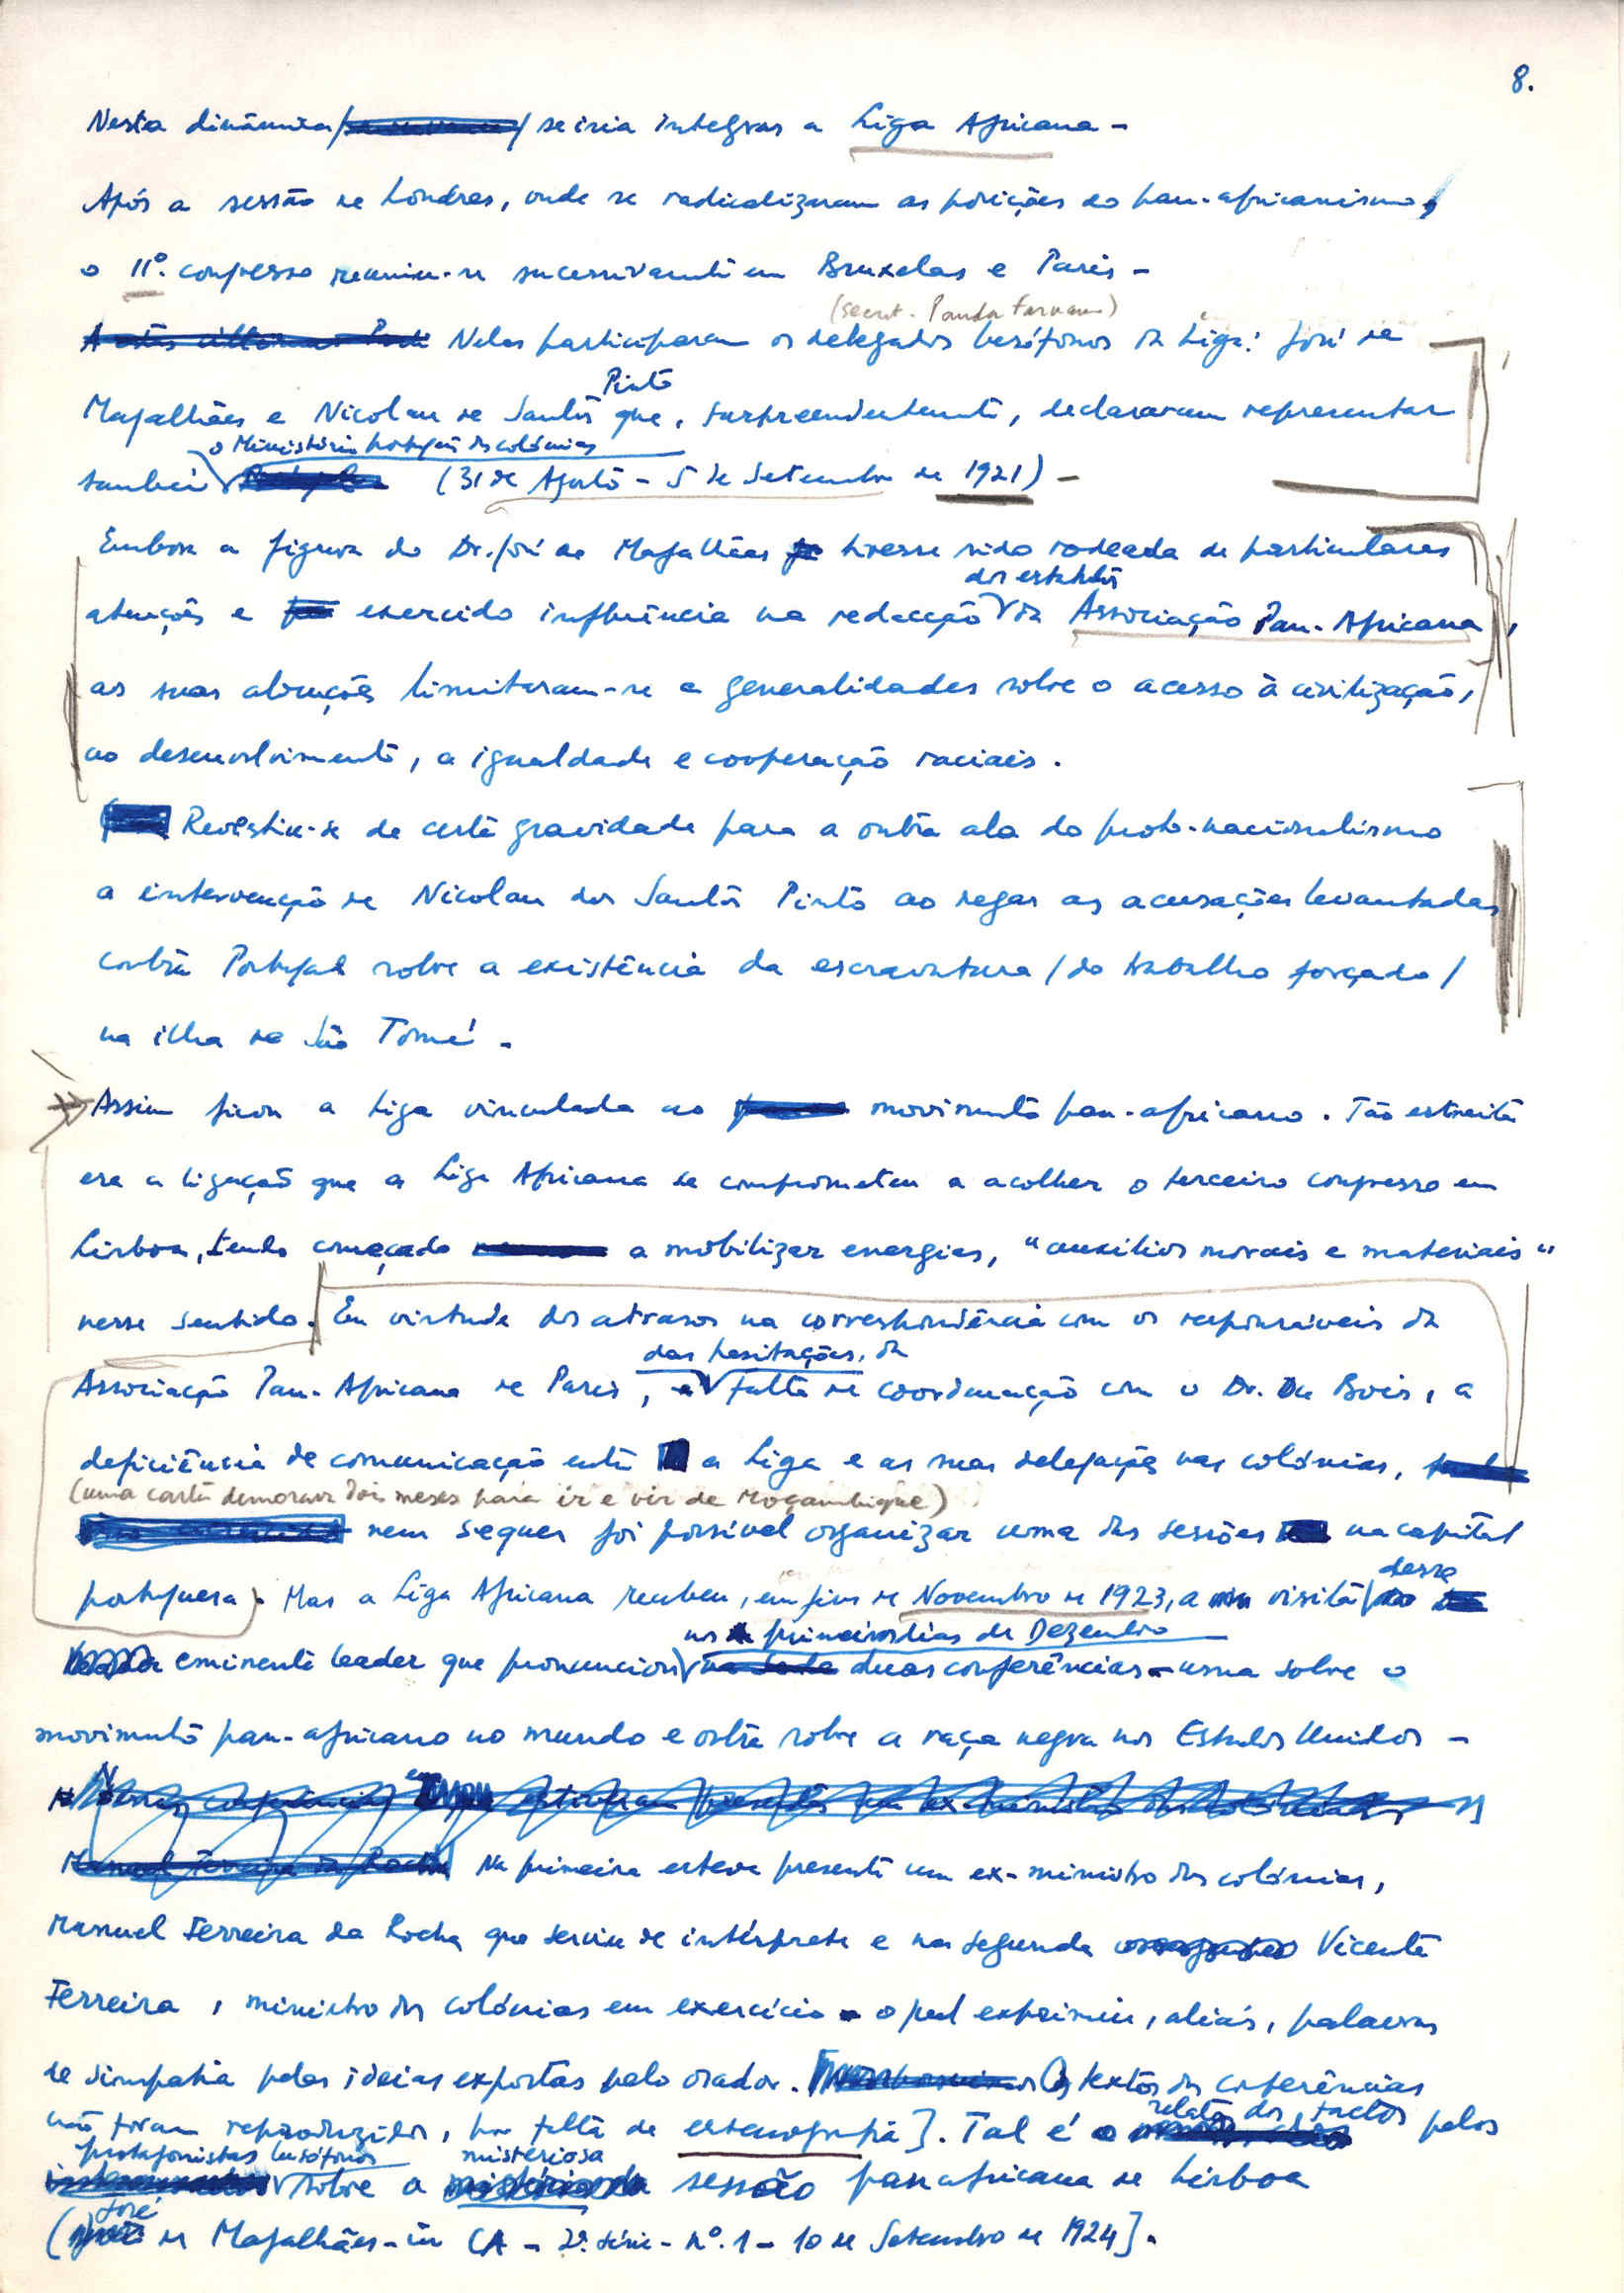 8.
Nesta dinâmica / se iria integrar a Liga Africana -
Após a sessão de Londres, onde se radicalizaram as posições do pan-africanismo,
o IIº. congresso reuniu-se sucessivamente em Bruxelas e Paris -
(secret. Panda Farnana)
Nelas participaram os delegados lusófonos da Liga: José de
Pinto
Magalhães e Nicolau de Santos que, surpreendentemente, declararam representar
o Ministério português das colónias
também (31 de Agosto - 5 de Setembro de 1921) -
Embora a figura do Dr. José de Magalhães tivesse sido rodeada de particulares
dos estatutos
atenções e exercido influência na redacção da Associação Pan-Africana,
as suas alocuções limitaram-se a generalidades sobre o acesso à civilização,
ao desenvolvimento, a igualdade e cooperação raciais.
Revestiu-se de certa gravidade para a outra ala do proto-nacionalismo
a intervenção de Nicolau dos Santos Pinto ao negar as acusações levantadas
contra Portugal sobre a existência da escravatura / do trabalho forçado /
na ilha de São Tomé -
Assim ficou a Liga vinculada ao movimento pan-africano. Tão estreita
era a ligação que a Liga Africana se comprometeu a acolher o terceiro congresso em
Lisboa, tendo começado a mobilizar energias, "auxílios morais e materiais"
nesse sentido. Em virtude dos atrasos na correspondência com os responsáveis da
das hesitações, da
Associação Pan-Africana de Paris, falta de coordenação com o Dr. Du Bois, a
deficiência de comunicação entre a Liga e as suas delegações nas colónias,
(uma carta demorava dois meses para ir e vir de Moçambique)
nem sequer foi possível organizar uma das sessões na capital
desse
portuguesa). Mas a Liga Africana recebeu, em fins de Novembro de 1923, a visita
nos primeiros dias de Dezembro
eminente leader que pronunciou duas conferências - uma sobre o
movimento pan-africano no mundo e outra sobre a raça negra nos Estados Unidos -
Na primeira esteve presente um ex-ministro das colónias,
Manuel Ferreira da Rocha que serviu de intérprete e na segunda Vicente
Ferreira, ministro das colónias em exercício - o qual exprimiu, aliás, palavras
de simpatia pelas ideias expostas pelo orador. [Os textos das conferências
relato dos factos
não foram reproduzidos, por falta de estenografia]. Tal é o pelos
protagonistas lusófonos misteriosa
sobre a sessão panafricana de Lisboa
José
( de Magalhães - in CA - 2ª. série - nº. 1 - 10 de Setembro de 1924].